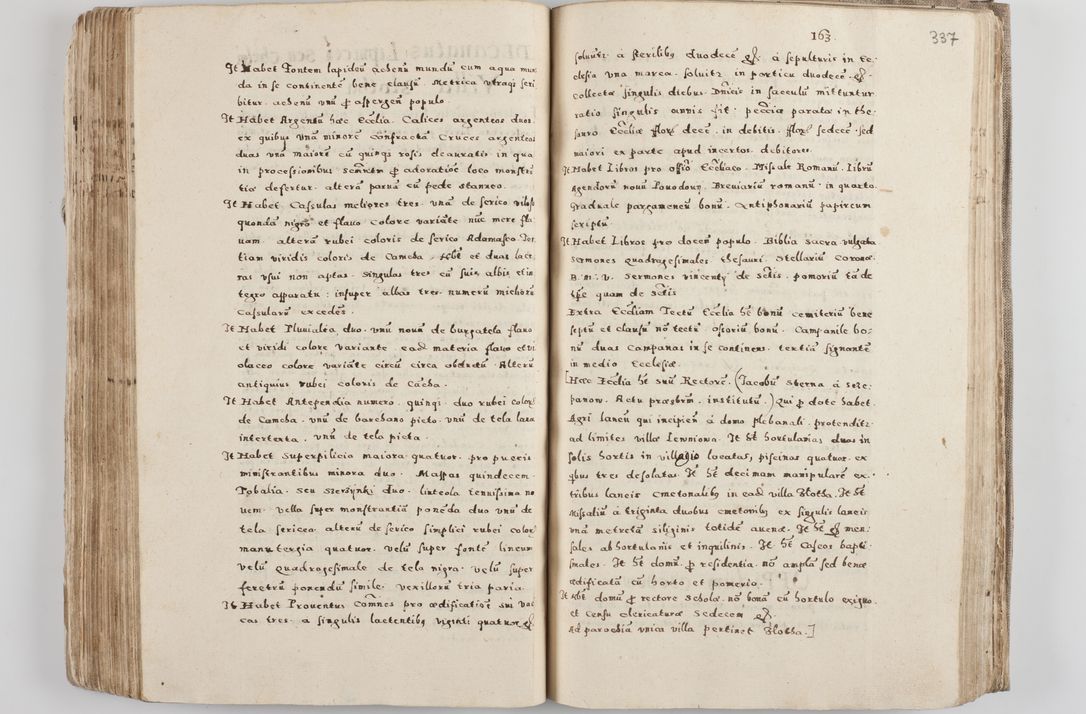 It Habet Fontem lapideũ acdenũ mundũ cum aqua mun
da in se continentẽ bene clausũ. Metrica utraqꝫ scri
bitur. acdenũ unũ ꝓ aspergen̄ populo.
It Habet Argentũ hæc Eccl̃ia. Calices argenteos duos.
ex quibus unũ minorẽ confractũ. Cruces argenteas
duas unã maiorẽ cũ quinqꝫ rosis deauratis. in qua
in processionibus ꝓ adoratiõe loco monstrã
tiæ defertur. alterã paruã cũ pede stanneo.
It Habet Casulas meliores tres. unã de serico
quondã nigro et flauo colore variãte nũc mere fla
uam. alterã rubei coloris de serico Adamasco. Ter
tiam viridis coloris de Camcha. Hẽt et duas lace
ras usui non aptas. Singulas tres cũ suis albis et in
tegro apparatu: insuper albas tres numerũ
Casularũ excedẽs.
It Habet Pluuialia duo. unũ nouũ de burgatela flauo
et viridi colore variante eađ materia flauo et vi
olaceo colore variãte circũ circa obductũ. Alterũ
antiquius rubei coloris de Cãcha.
It Habet Antependia numero quinqꝫ. duo rubei color̃
de Camcha. unũ de barchano picto. unũ de tela lana
intertexta. unũ de tela picta.
It Habet Superpilicia maiora quatuor. pro pueris
ministrantibus minora duo. Mappas quindecem.
Tobalia. seu Szerzynki duo. linteola tenuissima no
uem. vella super monstrantiã ponẽda duo unũ de
tela sericea. alterũ de serico simplici rubei color̃
manutergia quatuor. velũ super fontẽ lineum
velũ quadragesimale de tela nigra. velũ super
feretrũ ponendũ simile. vexillorũ tria paria.
It Habet Prouentus Com̃nes pro ædificatiõe sui vac
cas tres. a singulis lactentibꝫ viginti quatuor g̃.
163.
337
soluũtꝛ à sterilibꝫ duodecẽ g̃. à sepulturis in Ec
clesia una marca. soluitꝛ in porticu duodecẽ. g̃.
collecta singulis diebus Dñicis in sacculũ mittuntur
ratio singulis annis fit. pecũia parata in the:
sauro Eccl̃iæ floꝝ decẽ. in debitis. floꝝ sedecẽ. sed
maiori ex parte apud incertos debitores.
It Habet Libros pro officõ Eccl̃iaco. Missale Romanũ. librũ
Agendorũ nouũ Powodouy. Breuiariũ romanũ in quarto.
Graduale pargameneũ bonũ. Antiphonariũ papireum
scriptũ.
It Habet Libros pro docen̄ populo. Biblia sacra vulgata
sermones quadragesimales thesauri. Stellariũ coronæ.
B. M. V. Sermones vincentij de sc̃tis. pomoriũ tã de
tp̃e quam de sc̃tis
Extra Eccl̃iam Tectũ Eccl̃ia hẽt bonũ cemiteriũ bene
septũ et clausũ nõ tectũ. Osoriũ bonũ. Campanile bo:
nũ duas campanas in se continens. tertiã signantẽ
in medio Ecclesiæ.
[Hæc Eccl̃ia hẽt suũ Rectorẽ. (Jacobũ Sterna à Szcze:
panow. Actu præsbrm̃. institutũ.) Qui ꝓ dote habet.
Agri laneũ qui incipien̄ à domo plebanali protenditꝛ
ad limites villæ Lewniowa. It hẽt hortulanias duas in
solis hortis in villagio locatas, piscinas quatuor. ex
qbus tres desolatas. It hẽt decimam manipularẽ ex
tribus laneis cmetonalibꝫ in eađ villa Zlotha. It hẽt
Missaliũ à triginta duobus cmetonibꝫ ex singulis laneis
unã metretã siliginis totidẽ auenæ. It hẽt g̃ men:
sales ab hortulanis et inquilinis. It hẽt Caseos bapti:
smales. It hẽt domũ ꝓ residentia nõ amplã sed bene
ædificatã cũ horto et pomerio.
It hẽt domũ ꝓ rectore scholæ nõ bonã cũ hortulo exiguo.
et censu clericaturæ sedecem g̃.
Ad parochiã unica villa pertinet Zlotha.]